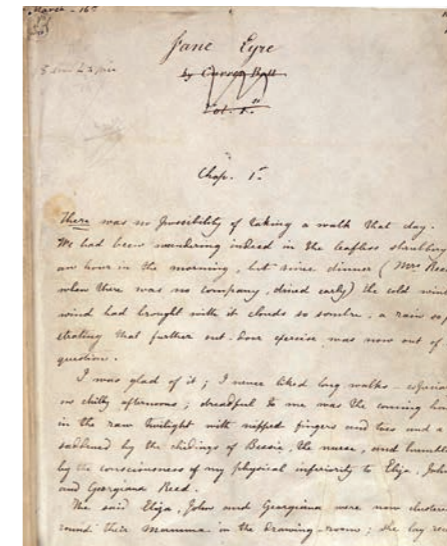 March - 16th
Jane Eyre
by Currer Bell
Vol. 1.st
Chap. 1.
There was no possibility of taking a walk that day.
We had been wandering indeed in the leafless shrubbery
an hour in the morning, but since dinner (Mrs Reed
when there was no company, dined early) the cold wint
wind had brought with it clouds so sombre, a rain so p
etrating that further out-door exercise was now out of
question.
I was glad of it; I never liked long walks - especial
on chilly afternoons; dreadful to me was the coming ho
in the raw twilight with nipped fingers and toes and a
saddened by the chidings of Bessie, the nurse, and humble
by the consciousness of my physical inferiority to Eliza, John
and Georgiana Reed.
The said Eliza, John and Georgiana were now clustere
round their mamma in the drawing-room; she lay rec